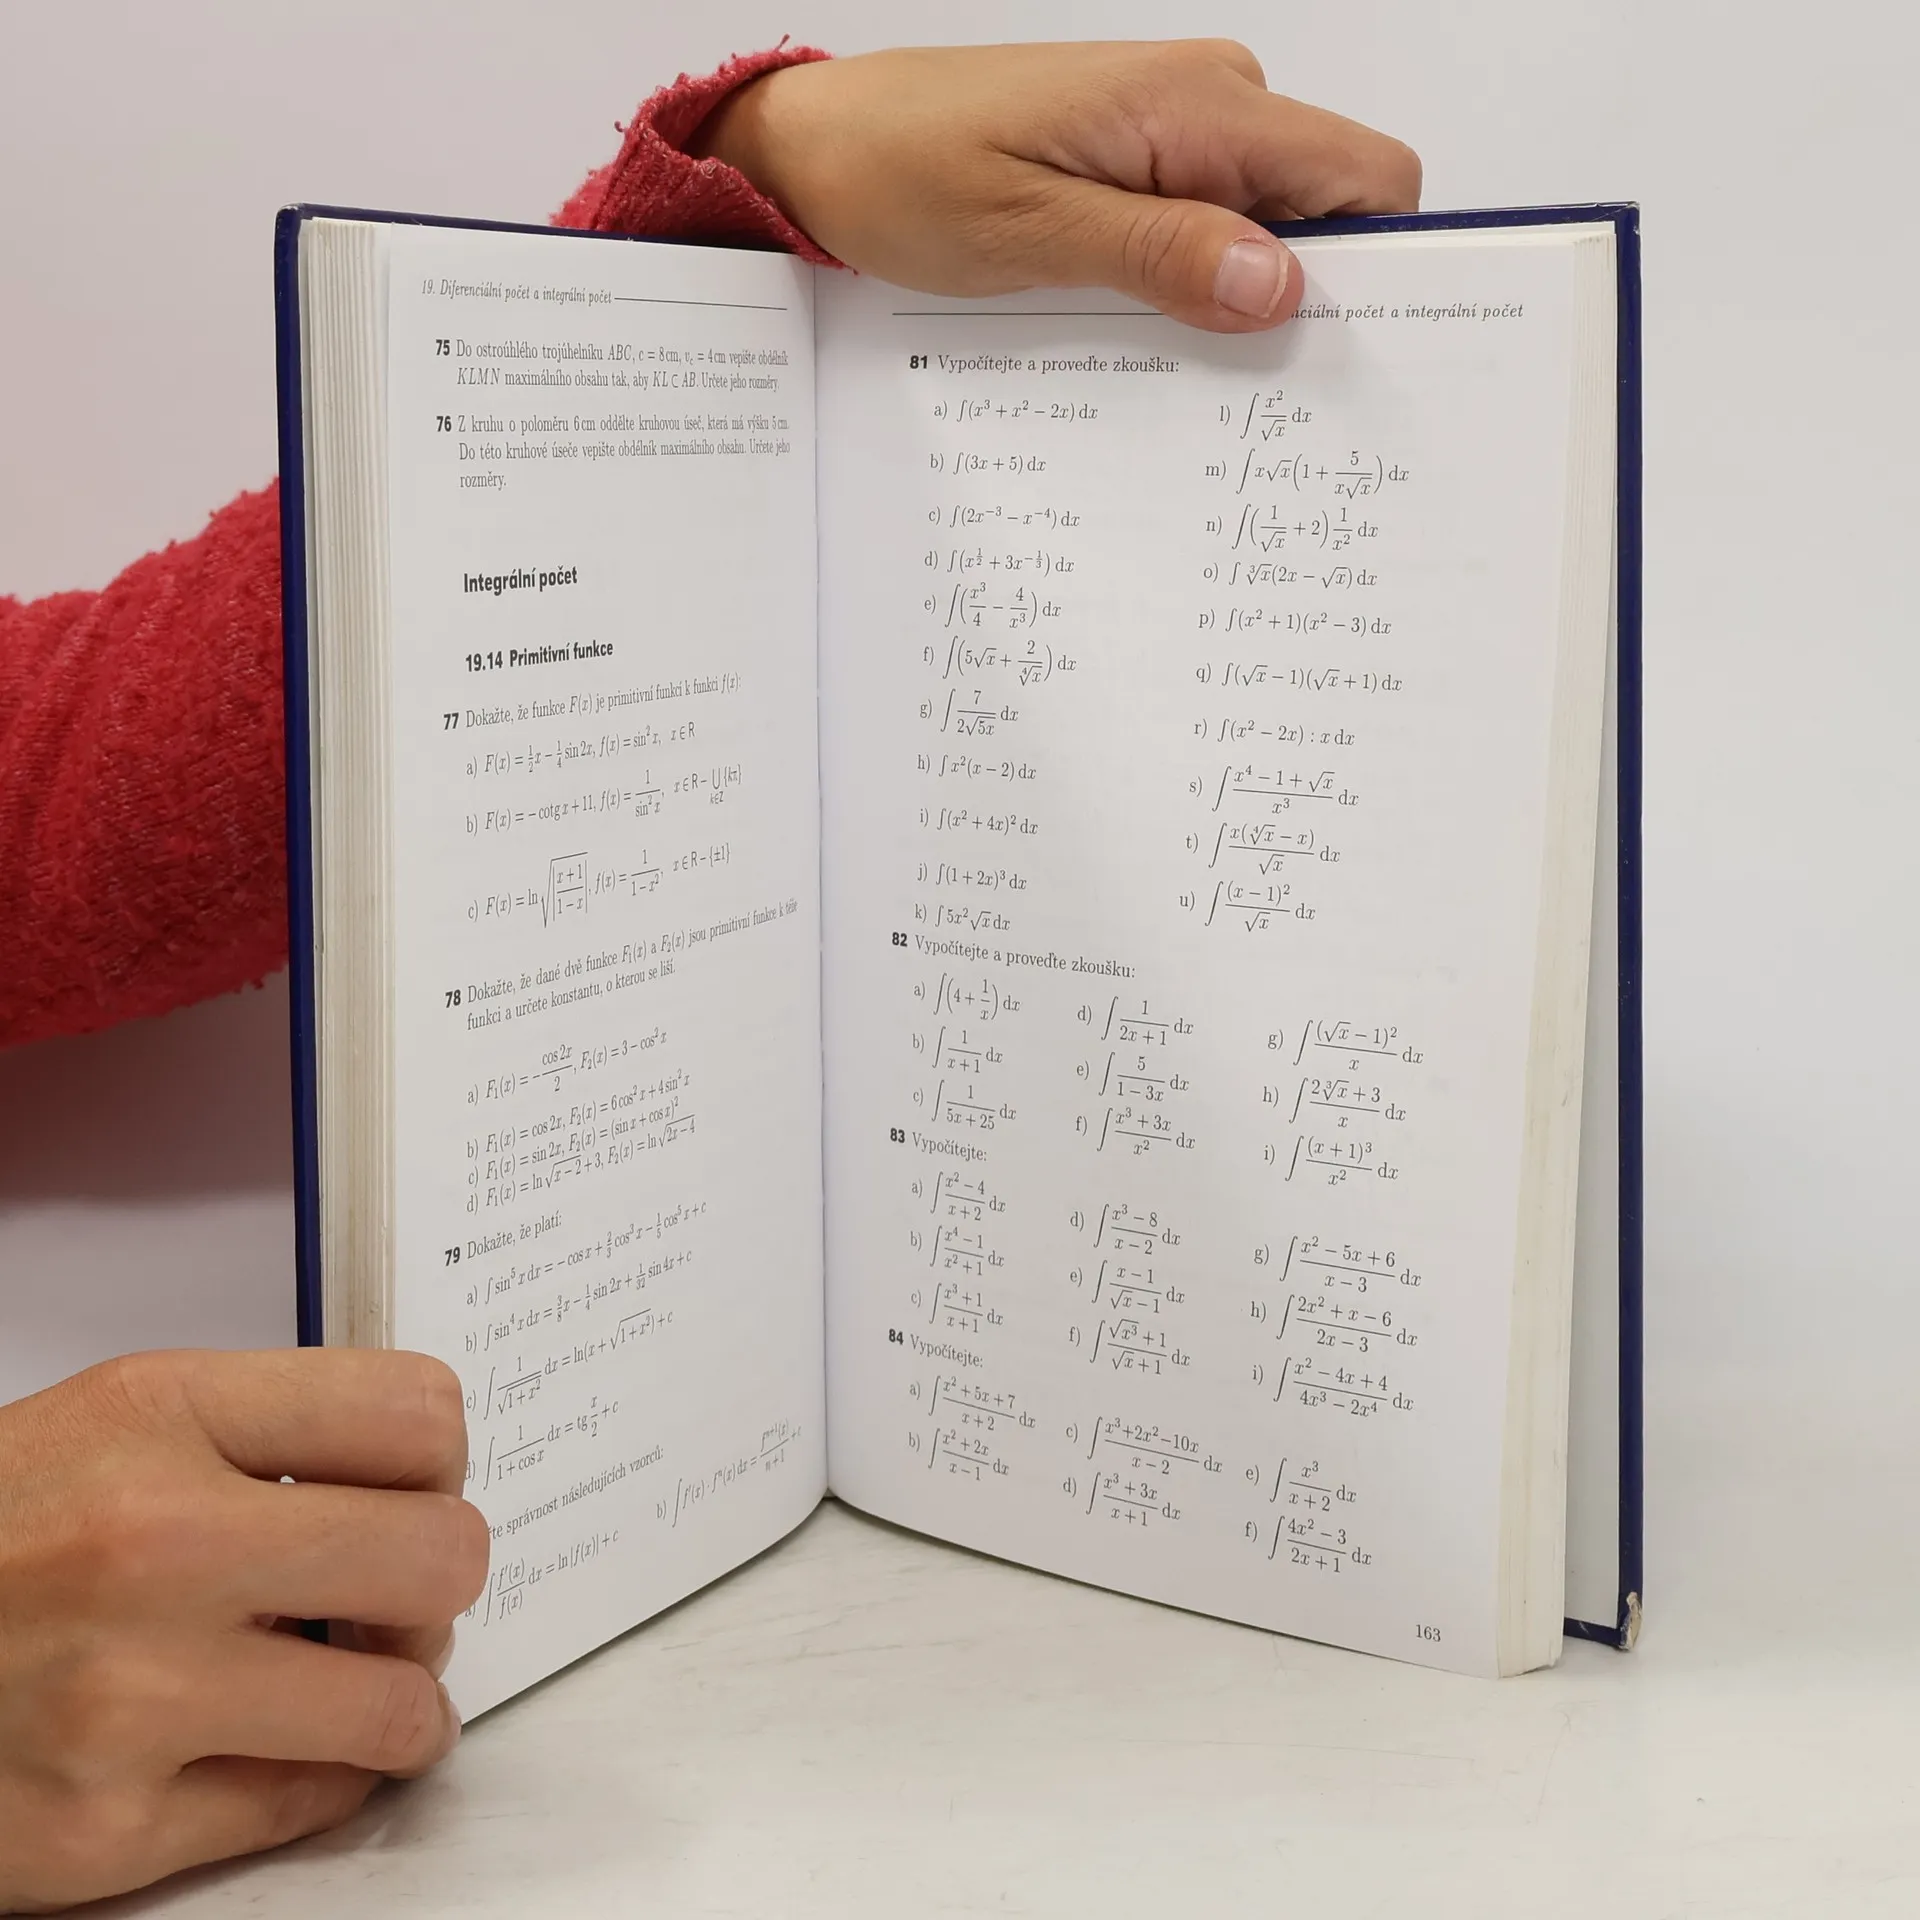 19. Diferenciální počet a integrální počet
75 Do ostroúhlého trojúhelníku ABC, c = 8 cm, v_c = 4 cm vepište obdélník
KLMN maximálního obsahu tak, aby KL ⊂ AB. Určete jeho rozměry.
76 Z kruhu o poloměru 6 cm oddělte kruhovou úseč, která má výšku 5 cm.
Do této kruhové úseče vepište obdélník maximálního obsahu. Určete jeho
rozměry.
Integrální počet
19.14 Primitivní funkce
77 Dokažte, že funkce F(x) je primitivní funkcí k funkci f(x):
a) F(x) = 1/2 x − 1/4 sin 2x, f(x) = sin² x, x ∈ R
b) F(x) = −cotg x + 11, f(x) = 1/sin² x, x ∈ R − ⋃_{k∈Z} {kπ}
c) F(x) = ln √|(x+1)/(1−x)|, f(x) = 1/(1−x²), x ∈ R − {±1}
78 Dokažte, že dané dvě funkce F₁(x) a F₂(x) jsou primitivní funkce k téže
funkci a určete konstantu, o kterou se liší.
a) F₁(x) = −cos 2x/2, F₂(x) = 3 − cos² x
b) F₁(x) = cos 2x, F₂(x) = 6 cos² x + 4 sin² x
c) F₁(x) = sin 2x, F₂(x) = (sin x + cos x)²
d) F₁(x) = ln √(x−2) + 3, F₂(x) = ln √(2x−4)
79 Dokažte, že platí:
a) ∫ sin⁵ x dx = −cos x + 2/3 cos³ x − 1/5 cos⁵ x + c
b) ∫ sin⁴ x dx = 3/8 x − 1/4 sin 2x + 1/32 sin 4x + c
c) ∫ 1/√(1+x²) dx = ln(x + √(1+x²)) + c
d) ∫ 1/(1+cos x) dx = tg x/2 + c
te správnost následujících vzorců:
a) ∫ f′(x)/f(x) dx = ln |f(x)| + c
b) ∫ f′(x) · fⁿ(x) dx = fⁿ⁺¹(x)/(n+1) + c
nciální počet a integrální počet
81 Vypočítejte a proveďte zkoušku:
a) ∫(x³ + x² − 2x) dx
b) ∫(3x + 5) dx
c) ∫(2x⁻³ − x⁻⁴) dx
d) ∫(x^{1/2} + 3x^{−1/3}) dx
e) ∫(x³/4 − 4/x³) dx
f) ∫(5√x + 2/∜x) dx
g) ∫ 7/(2√(5x)) dx
h) ∫ x²(x − 2) dx
i) ∫(x² + 4x)² dx
j) ∫(1 + 2x)³ dx
k) ∫ 5x² √x dx
l) ∫ x²/√x dx
m) ∫ x√x(1 + 5/(x√x)) dx
n) ∫(1/√x + 2) 1/x² dx
o) ∫ ∛x(2x − √x) dx
p) ∫(x² + 1)(x² − 3) dx
q) ∫(√x − 1)(√x + 1) dx
r) ∫(x² − 2x) : x dx
s) ∫ (x⁴ − 1 + √x)/x³ dx
t) ∫ x(∜x − x)/√x dx
u) ∫ (x − 1)²/√x dx
82 Vypočítejte a proveďte zkoušku:
a) ∫(4 + 1/x) dx
b) ∫ 1/(x+1) dx
c) ∫ 1/(5x + 25) dx
d) ∫ 1/(2x + 1) dx
e) ∫ 5/(1 − 3x) dx
f) ∫ (x³ + 3x)/x² dx
g) ∫ (√x − 1)²/x dx
h) ∫ (2∛x + 3)/x dx
i) ∫ (x + 1)³/x² dx
83 Vypočítejte:
a) ∫ (x² − 4)/(x + 2) dx
b) ∫ (x⁴ − 1)/(x² + 1) dx
c) ∫ (x³ + 1)/(x + 1) dx
d) ∫ (x³ − 8)/(x − 2) dx
e) ∫ (x − 1)/(√x − 1) dx
f) ∫ (√x³ + 1)/(√x + 1) dx
g) ∫ (x² − 5x + 6)/(x − 3) dx
h) ∫ (2x² + x − 6)/(2x − 3) dx
i) ∫ (x² − 4x + 4)/(4x³ − 2x⁴) dx
84 Vypočítejte:
a) ∫ (x² + 5x + 7)/(x + 2) dx
b) ∫ (x² + 2x)/(x − 1) dx
c) ∫ (x³+2x²−10x)/(x − 2) dx
d) ∫ (x³ + 3x)/(x + 1) dx
e) ∫ x³/(x + 2) dx
f) ∫ (4x² − 3)/(2x + 1) dx
163